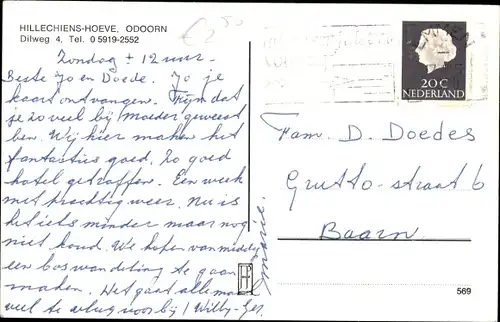 HILLECHIENS-HOEVE, ODOORN
Dilweg 4. Tel. 0 5919-2552
€2 50
Zondag ± 12 uur
Beste Jo en Doede. Zo je
kaart ontvangen. Fijn dat
je zo veel bij Moeder geweest
ben. Wij hier maken het
fantasties goed. Zo goed
hotel getroffen. Een week
met prachtig weer. Nu is
het iets minder maar nog
niet koud. We hopen vanmiddag
een boswandeling te gaan
maken. Het gaat allemaal
veel te vlug voorbij! Willy-Ger.
Marie.
20 C
NEDERLAND
Fam. D. Doedes
Grutto-straat 6
Baarn.
569